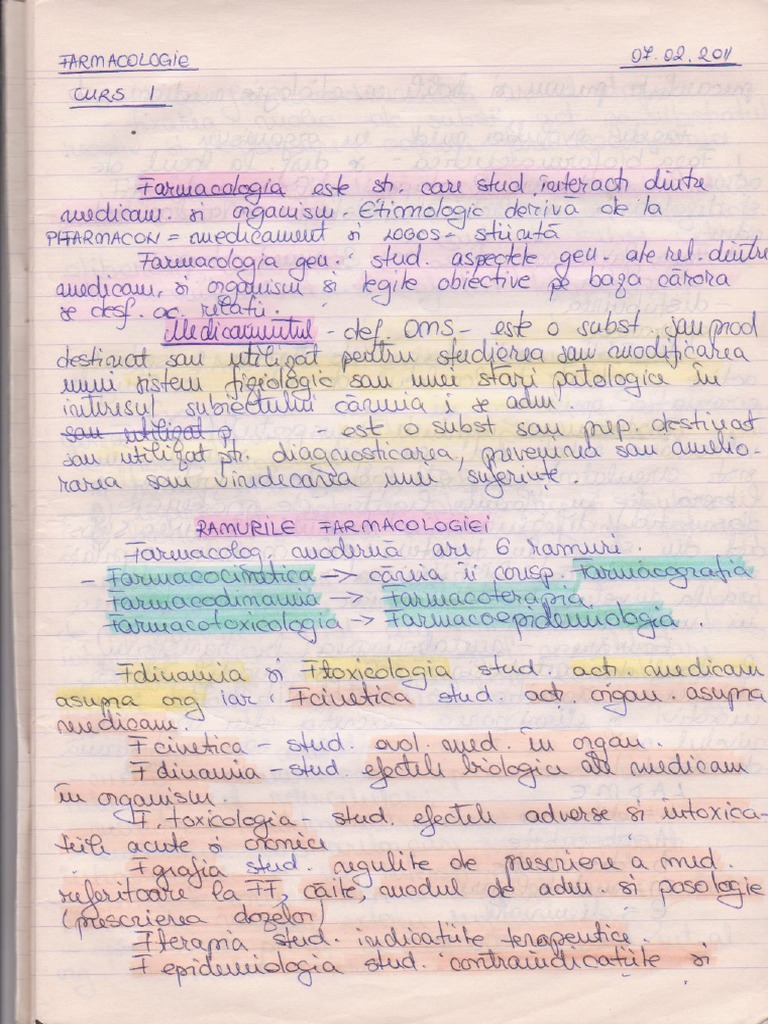 FARMACOLOGIE 07.02.2011
CURS 1
Farmacologia este șt. care stud. interacț dintre
medicam. și organism. Etimologic derivă de la
PHARMACON = medicament și LOGOS = știință
Farmacologia gen. : stud. aspectele gen. ale rel. dintre
medicam. și organism și legile obiective pe baza cărora
se desf. ac. relații.
Medicamentul - def. OMS - este o subst. sau prod
destinat sau utilizat pentru studierea sau modificarea
unui sistem fiziologic sau unei stări patologice în
interesul subiectului căruia i se adm.
sau utilizat p - este o subst sau prep. destinat
sau utilizat pt. diagnosticarea, prevenirea sau amelio-
rarea sau vindecarea unei suferințe.
RAMURILE FARMACOLOGIEI
Farmacolog. modernă are 6 ramuri.
- Farmacocinetica -> căruia îi corsp. Farmacografia
Farmacodinamia -> Farmacoterapia
Farmacotoxicologia -> Farmacoepidemiologia.
Fdinamia și Ftoxicologia stud. acț. medicam
asupra org iar Fcinetica stud. acț. organ. asupra
medicam.
Fcinetica - stud. evol. med. în organ.
Fdinamia - stud. efectele biologice ale medicam
în organism.
F. toxicologia - stud. efectele adverse și intoxica-
țiile acute și cronice
Fgrafia stud. regulile de prescriere a med.
referitoare la FF, căile, modul de adm. și posologie
(prescrierea dozelor)
Fterapia stud. indicațiile terapeutice.
Fepidemiologia stud. contraindicațiile și